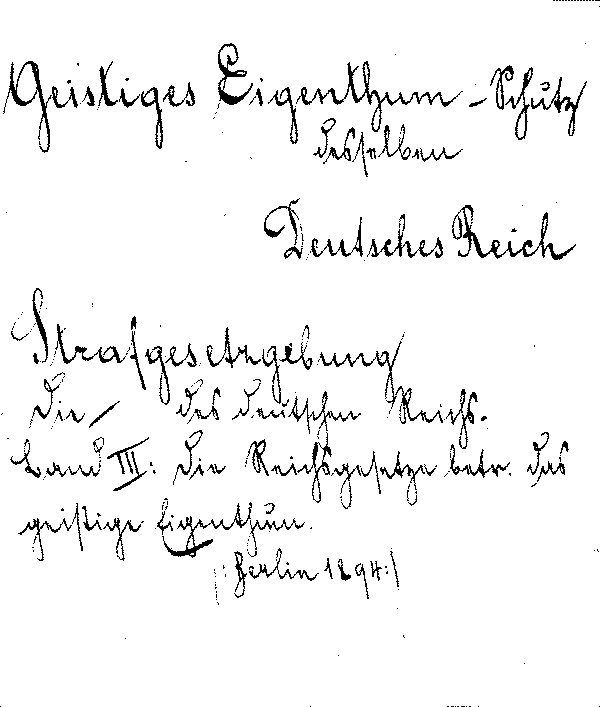 Geistiges Eigenthum - Schutz
desselben
Deutsches Reich
Strafgesetzgebung
die — des deutschen Reichs.
Band III: Die Reichsgesetze betr. das
geistige Eigenthum.
(: Berlin 1894 :)